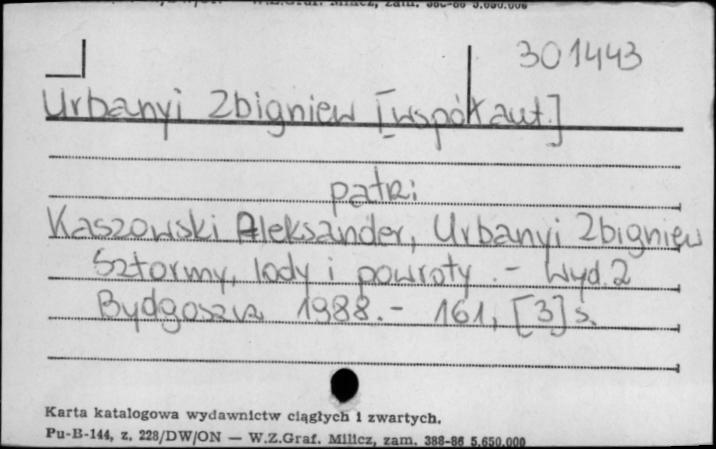 Pu-B-144, z. 228/DW/ON — W.Z.Graf. Milicz, zam. 388-86 5.650.000
301443
Urbanyi Zbigniew [współaut.]
patrz:
Kaszowski Aleksander, Urbanyi Zbigniew
Sztormy, lody i powroty. - Wyd. 2
Bydgoszcz 1988. - 161, [3] s.
Karta katalogowa wydawnictw ciągłych i zwartych.
Pu-B-144, z. 228/DW/ON — W.Z.Graf. Milicz, zam. 388-86 5.650.000